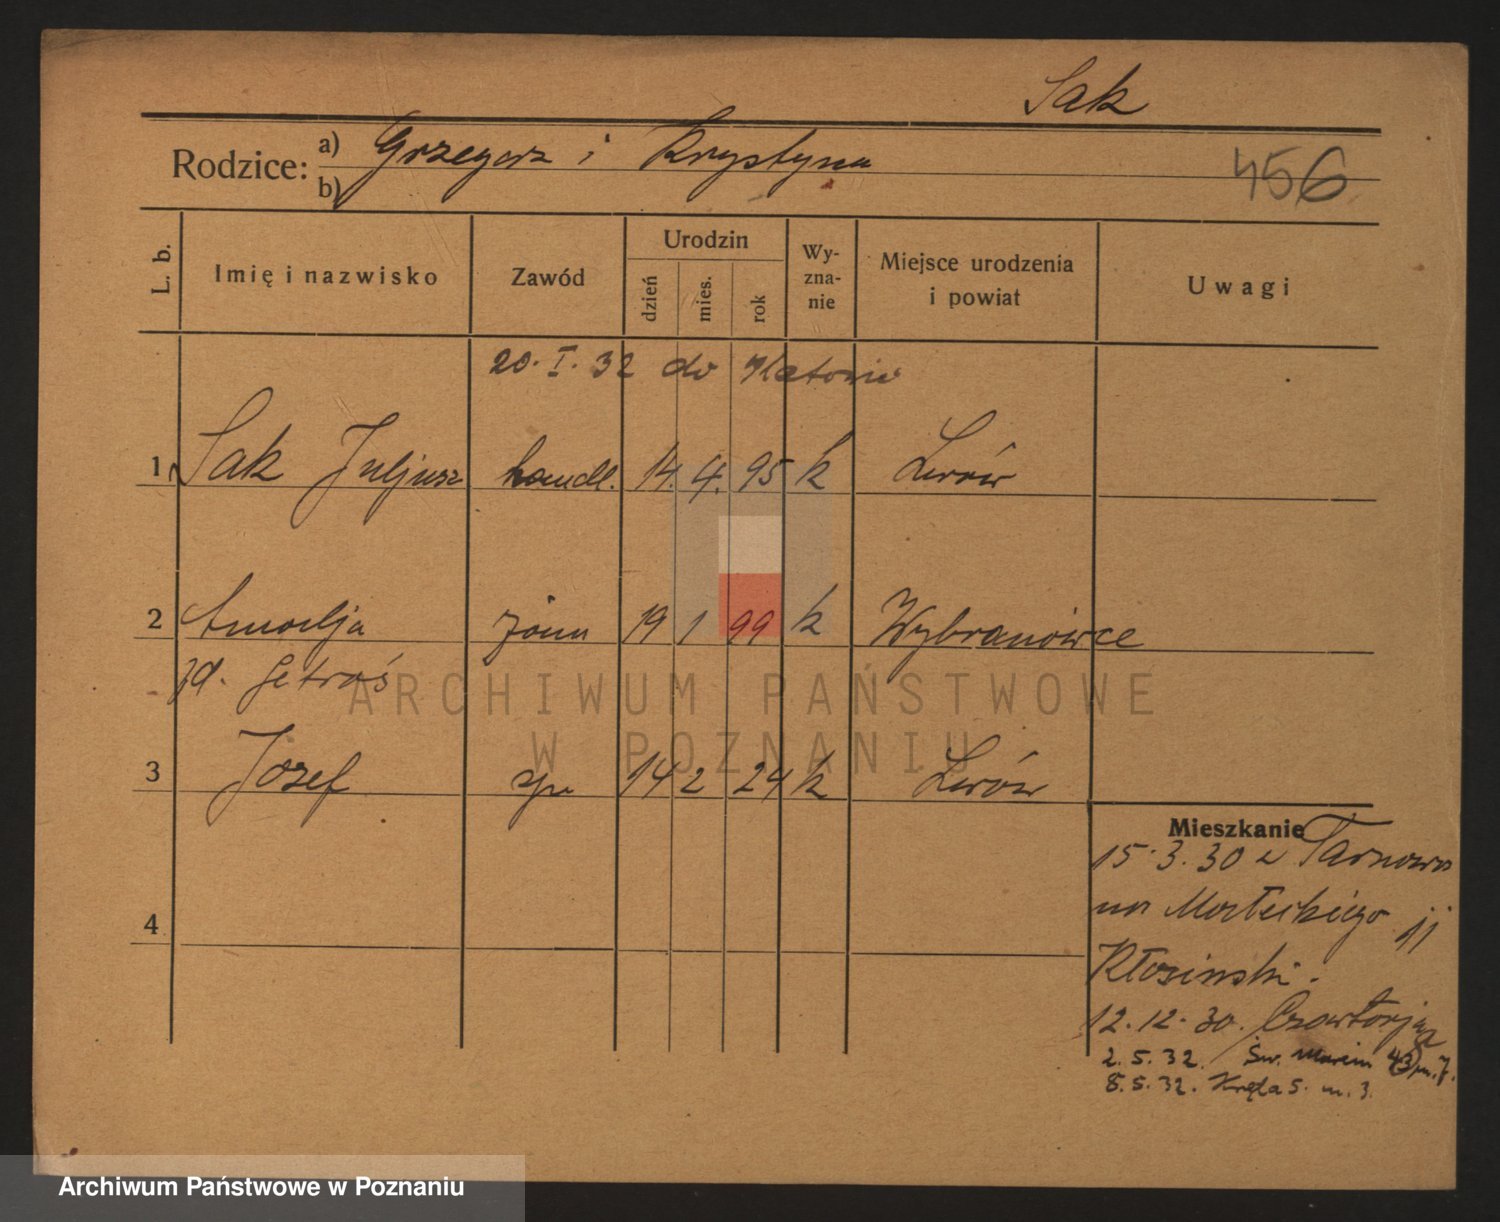 Sak
Rodzice: a) Grzegorz i Krystyna
b)
456
L. b. Imię i nazwisko Zawód Urodzin dzień mies. rok Wy-zna-nie Miejsce urodzenia i powiat Uwagi
20. I. 32 do Katowic
1 Sak Juljusz handl. 14. 4. 95 k Lwów
2 Amelja żona 19 1 99 k Wybranówce
zd.
3 Józef syn 14 2 24 k Lwów
4
Mieszkanie
15.3.30 z Tarnowa
11
Kłosiński.
12.12.30.
2.5.32. Św. Marcin 43 m. 7.
8.5.32. Kręta 5. m. 3.
ARCHIWUM PAŃSTWOWE
W POZNANIU
Archiwum Państwowe w Poznaniu